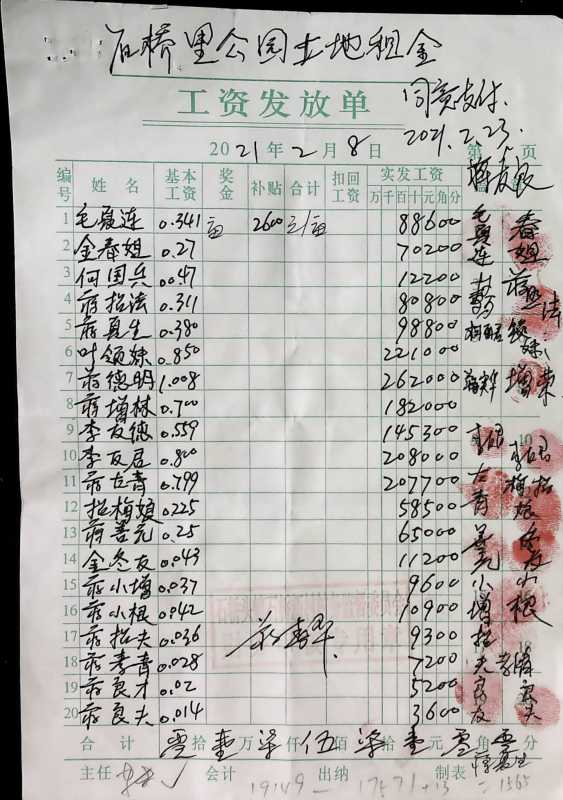 石桥里公园土地租金
工资发放单
同意支付.
2021.2.23.
2021年2月8日 第 页
编号 姓名 基本工资 奖金 补贴 合计 扣回工资 实发工资
万千百十元角分
1 毛夏连 0.341亩 2600元/亩 88600 毛夏连
2 金春姐 0.27 70200 春姐
3 何国兵 0.047 12200
4 蒋招法 0.311 80800 法
5 蒋夏生 0.380 98800
6 叶领妹 0.850 221000 领妹
7 蒋德明 1.008 262000 增荣
8 蒋增林 0.700 182000
9 李友德 0.559 145300
10 李友君 0.800 208000
11 蒋左青 0.799 207700 左青
12 招梅娘 0.225 58500 梅娘
13 蒋善元 0.25 65000 善元
14 金冬友 0.043 11200 冬友
15 蒋小增 0.037 9600 小增
16 蒋小根 0.042 10900 小根
17 蒋招夫 0.036 9300 招夫
18 蒋孝青 0.028 7200
19 蒋良才 0.02 5200
20 蒋良夫 0.014 3600 良夫
合计 零拾壹万柒仟伍佰柒拾壹元零角零分
主任 会计 出纳 制表
19149 - 17571 + 13 = 1565